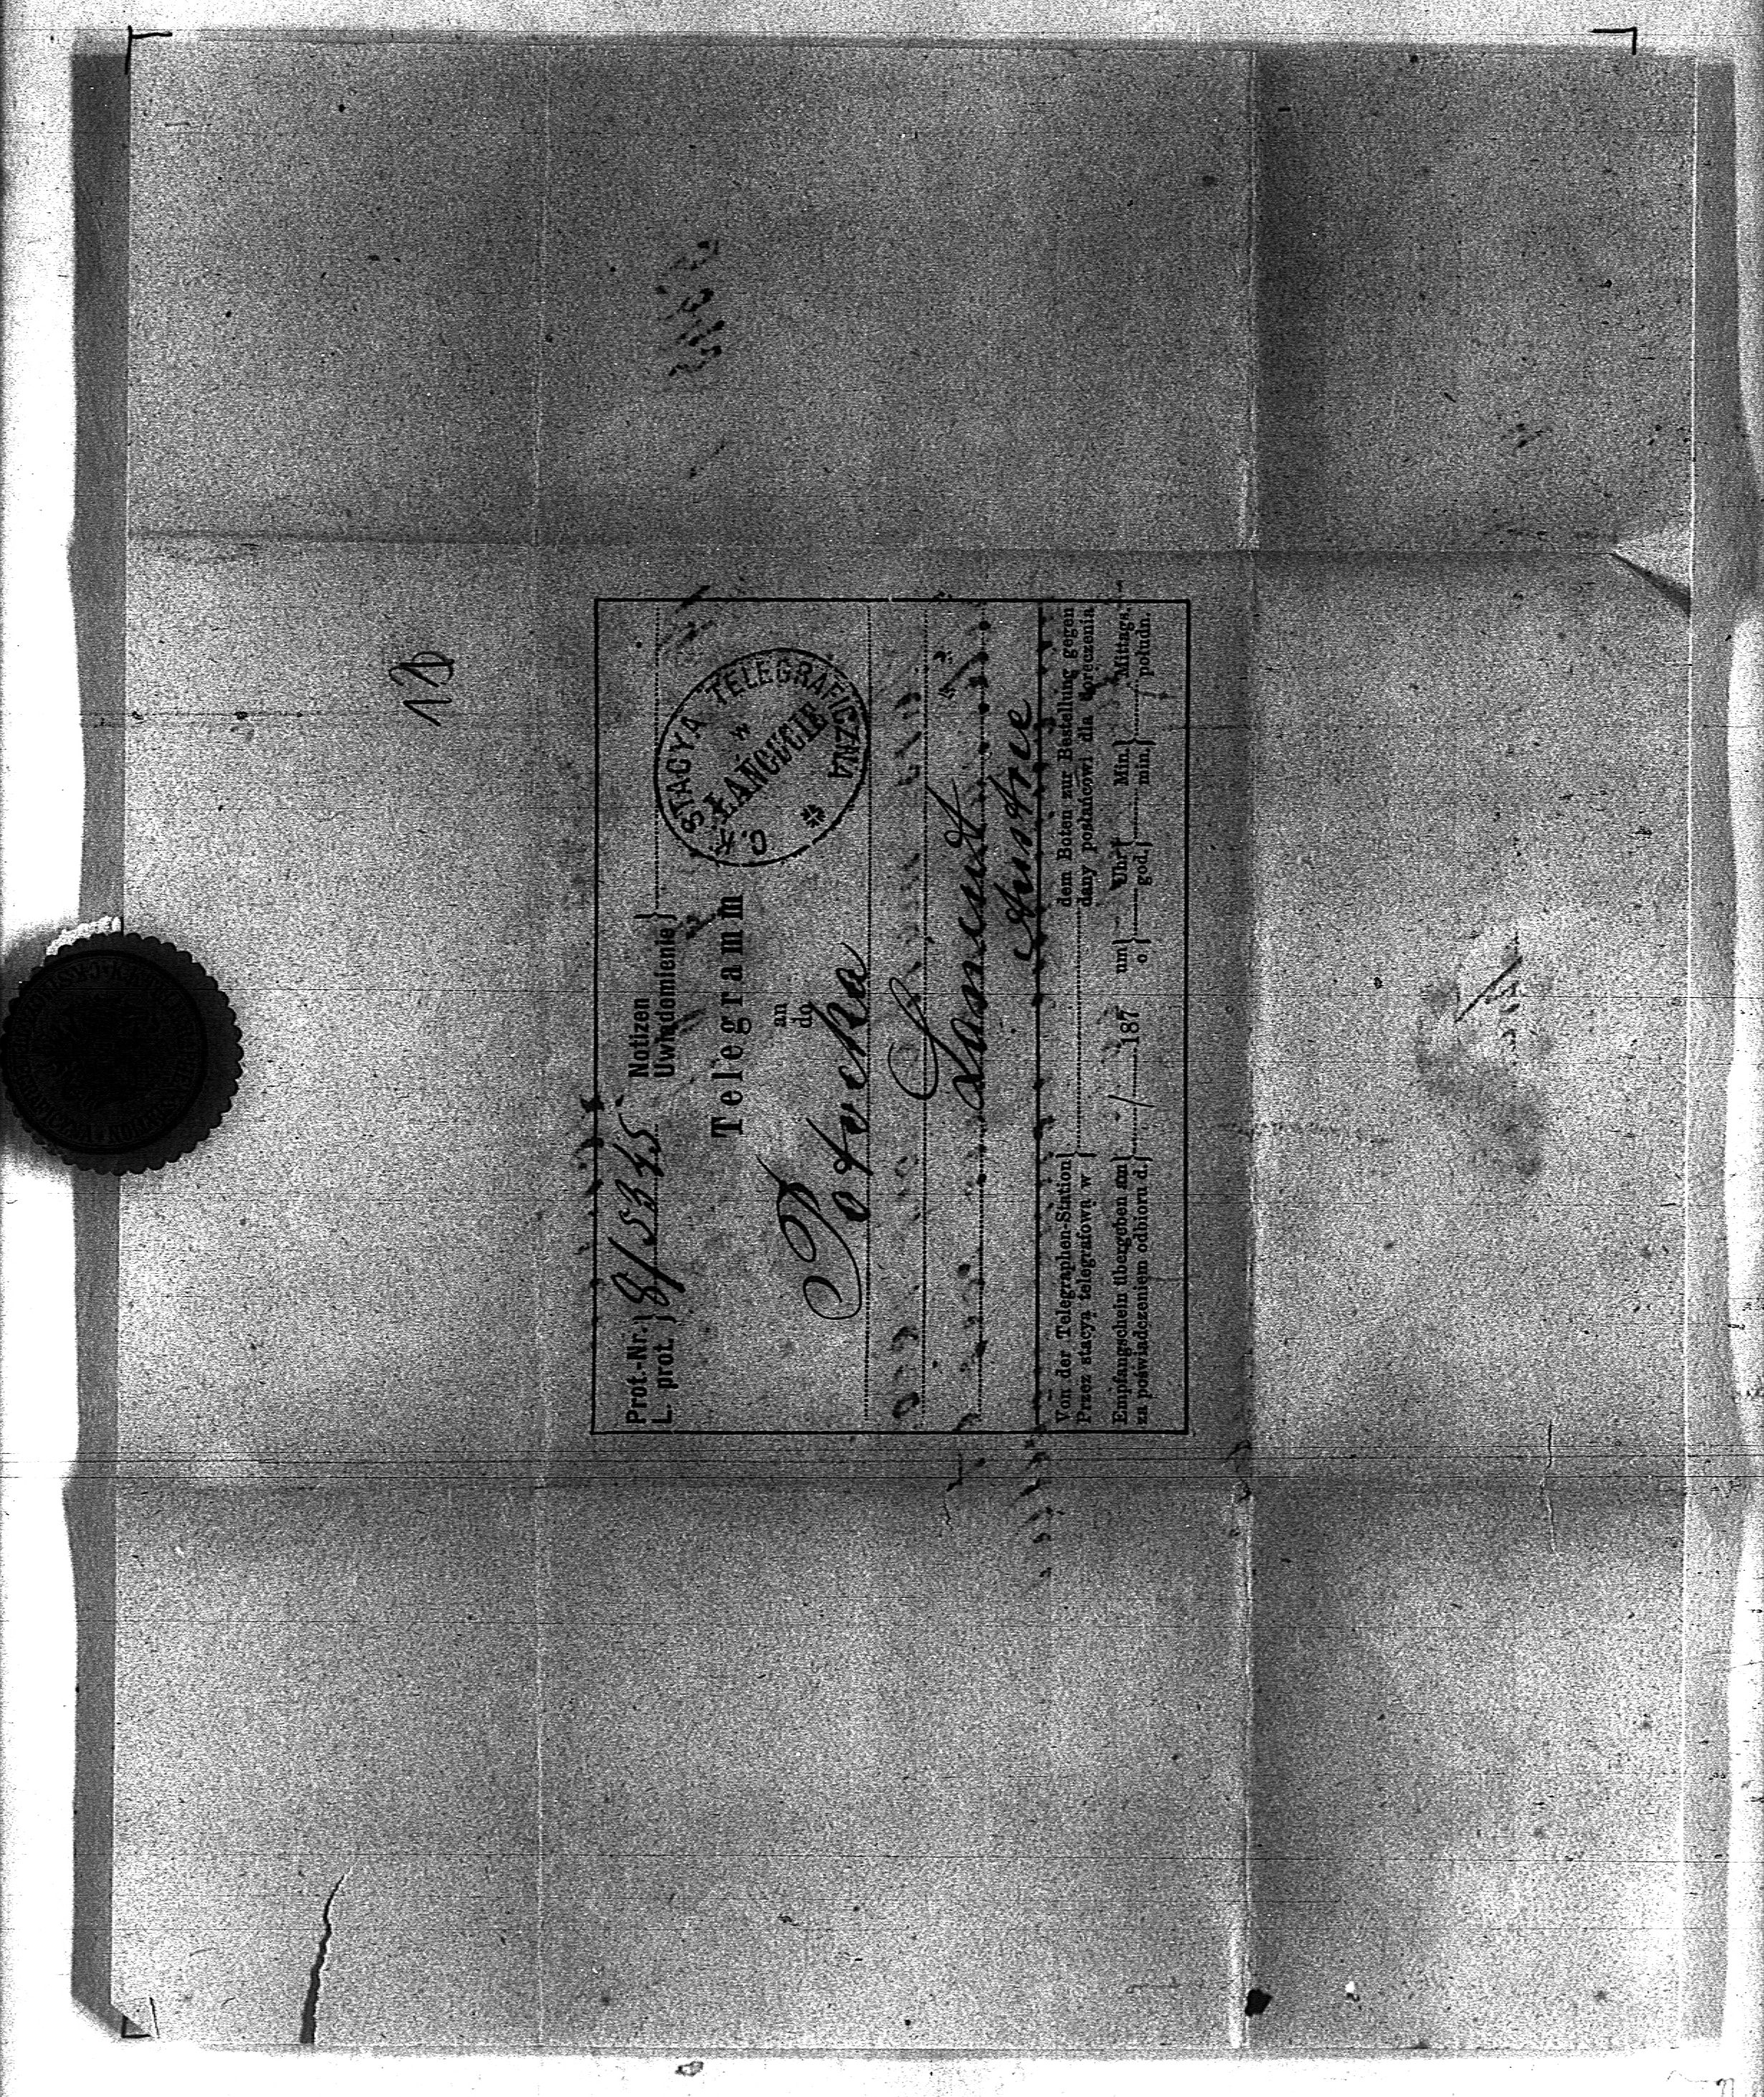 128
Prot.-Nr. } 8/5345 Notizen }
L. prot. } Uwiadomienie }
Telegramm
an
do
C. K. STACYA TELEGRAFICZNA
ŁAŃCUCIE
Potocka
Lancut
Von der Telegraphen-Station } dem Boten zur Bestellung gegen
Przez stacyą telegrafową w } dany posłańcowi dla doręczenia
Empfangschein übergeben am } / 187 um } Uhr } Min. } Mittags.
za poświadczeniem odbioru d. } o } god. } min. } połudn.